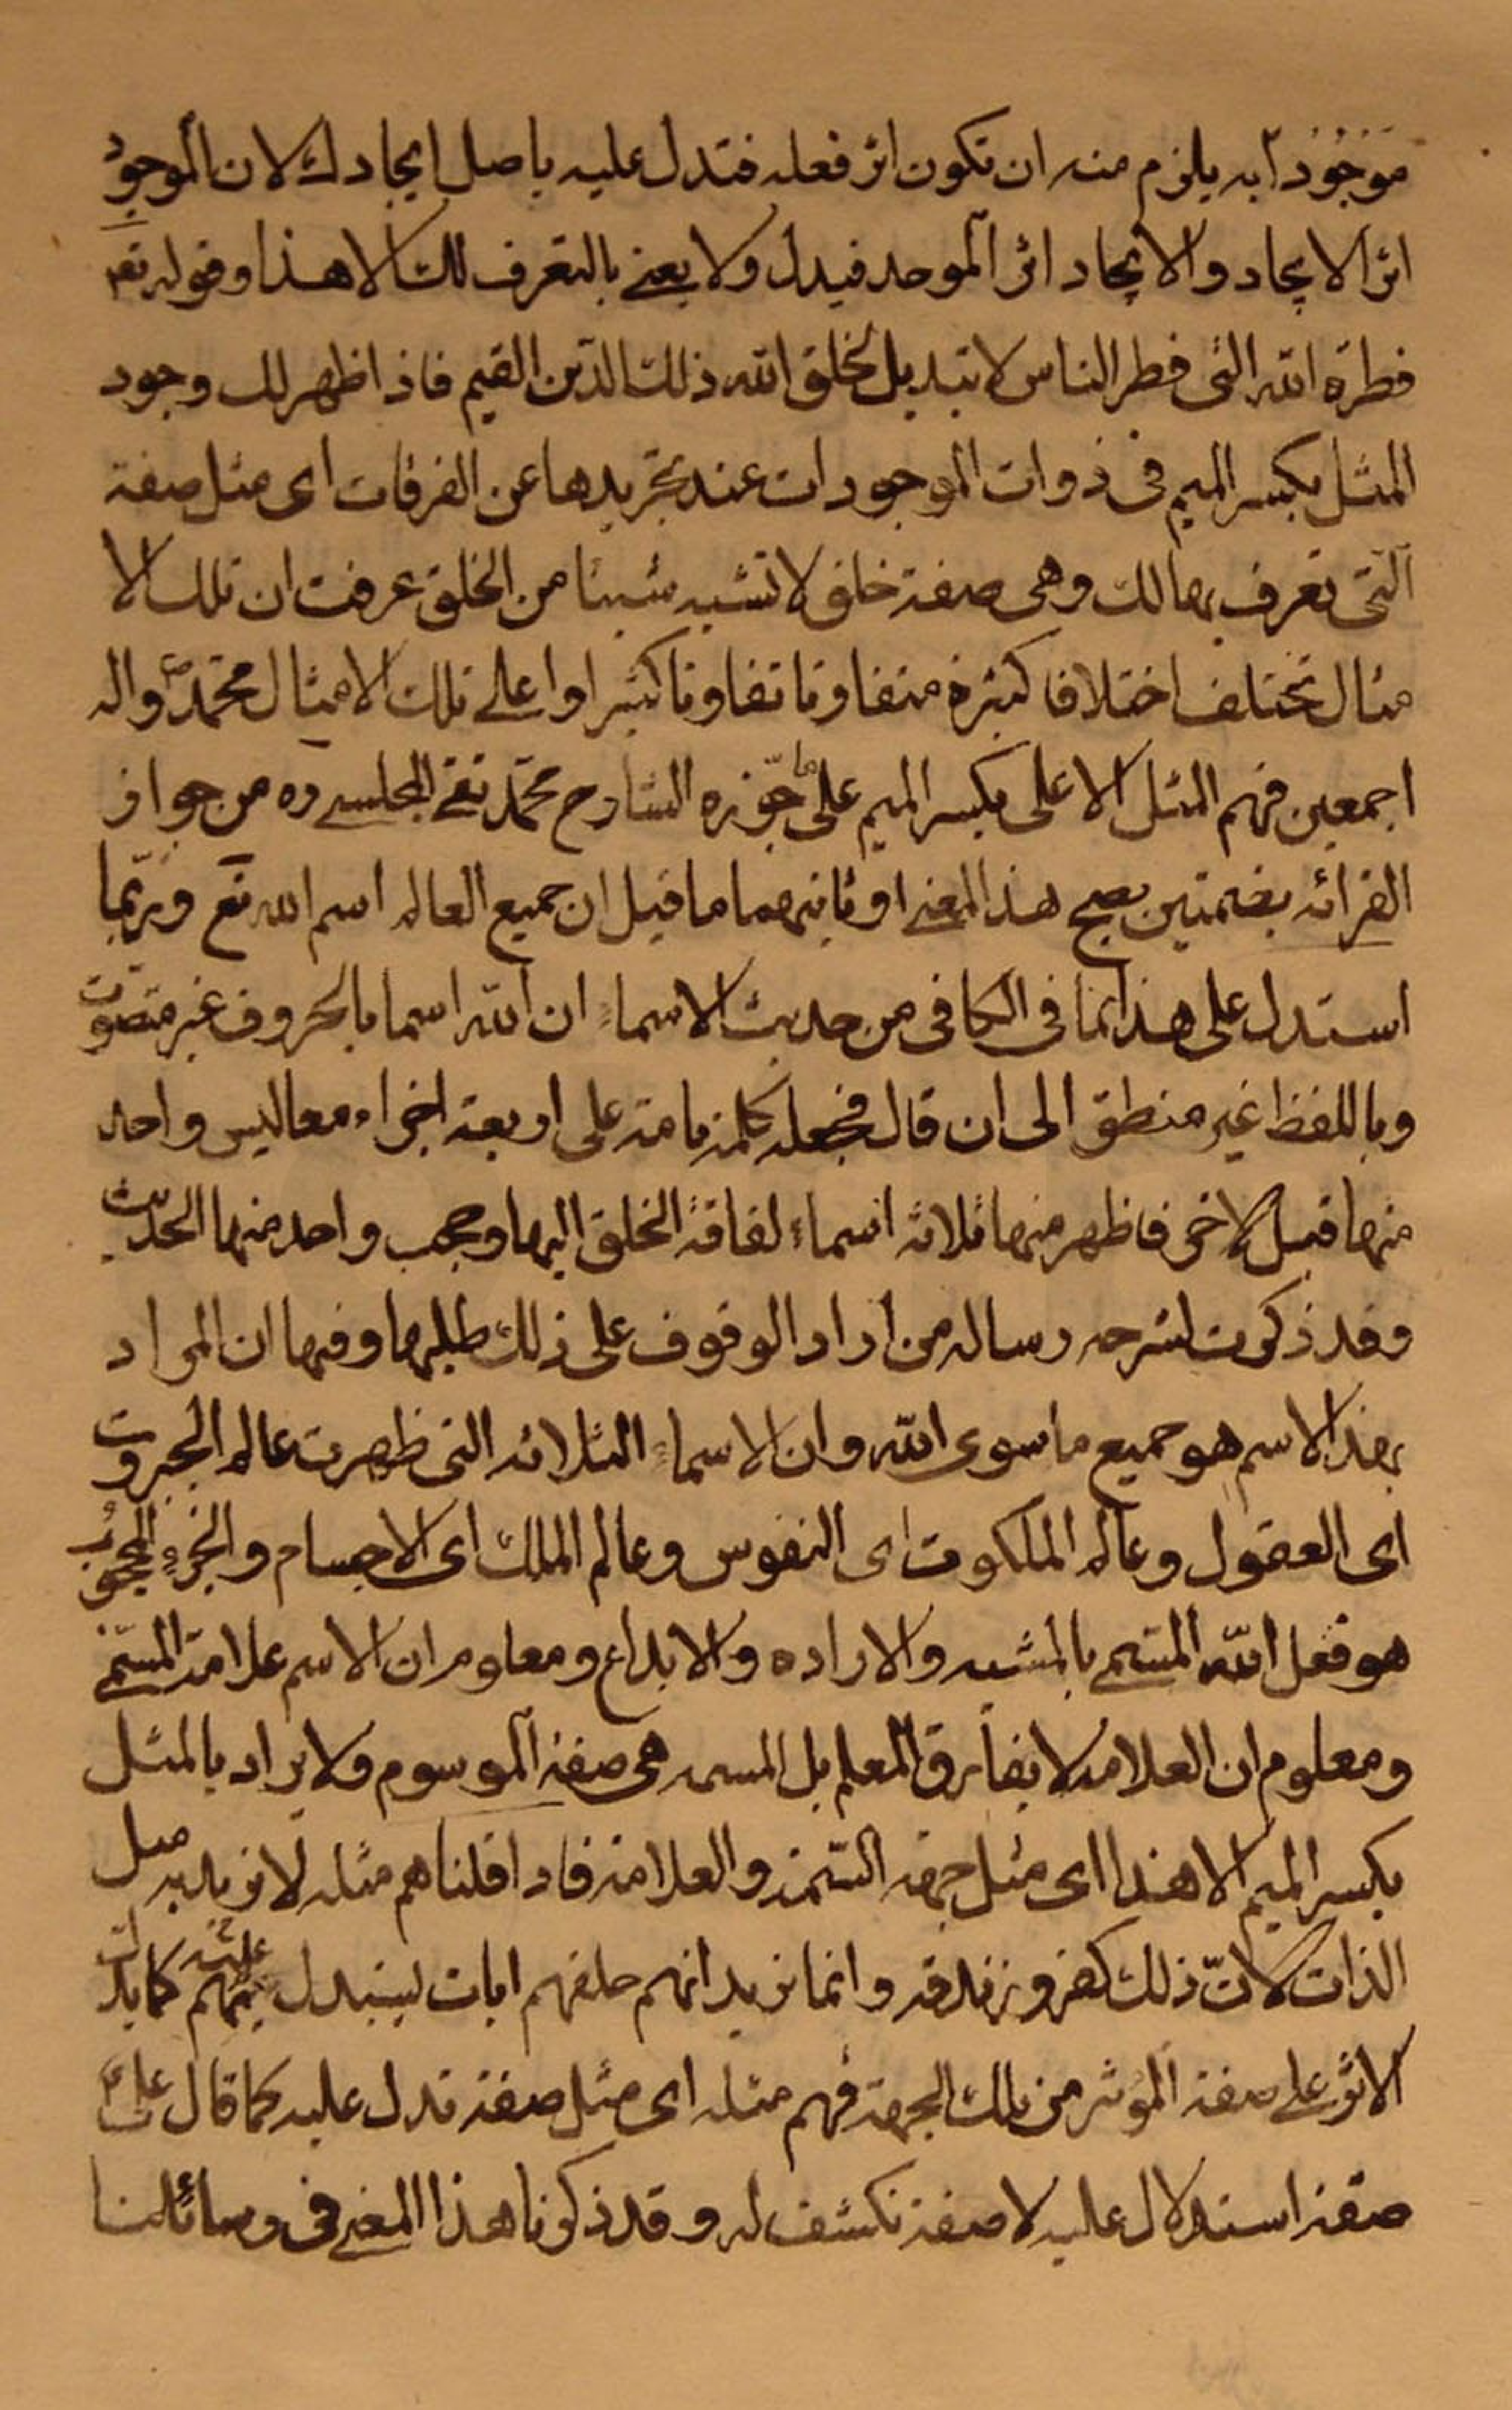 موجودا به يلزم منه ان تكون اثر فعله فتدل عليه باصل ايجادك لان الموجود
اثر الايجاد والايجاد اثر الموجد فيدل ولا يعنى بالتعرف لك الا هذا وقوله تعم
فطرة الله التى فطر الناس لا تبديل لخلق الله ذلك الدين القيم فاذا ظهر لك وجود
المثل بكسر الميم فى ذوات الموجودات عند تجريدها عن الفرقات اى مثل صفة
التى تعرف بها لك وهى صفة خلق لا تشبه شيئا من الخلق عرفت ان تلك الا
مثال تختلف اختلافا كثيرة متفاوتا تفاوتا كثيرا واعلى تلك الامثال محمد ص واله
اجمعين فهم المثل الاعلى بكسر الميم على ما جوزه الشارح محمد تقى المجلسى ره من جواز
القرائه بضمتين يصح هذا المعنى او ثانيهما ما قيل ان جميع العالم اسم الله تع وربما
استدل على هذا بما فى الكافى من حديث الاسماء ان الله اسما بالحروف غير متصوت
وباللفظ غير منطق الى ان قال فجعله كلمة تامة على اربعة اجزاء معا ليس واحد
منها قبل الاخر فاظهر منها ثلاثه اسماء لفاقة الخلق اليها وحجب واحد منها الحديث
وقد ذكرت لشرحه رساله من اراد الوقوف على ذلك طلبها وفيها ان المراد
بهذا الاسم هو جميع ما سوى الله وان الاسماء الثلاثه التى ظهرت عالم الجبروت
اى العقول وعالم الملكوت اى النفوس وعالم الملك اى الاجسام والجزء المحجوب
هو فعل الله المسمى بالمشيه والاراده والابداع ومعلوم ان الاسم علامة المسمى
ومعلوم ان العلامه لا يفارق المعلم بل السمه هى صفة الموسوم ولا يراد بالمثل
بكسر الميم الا هذا اى مثل جهة السمة والعلامة فاذا قلنا هم مثله لا نريد به مثل
الذات لان ذلك كفر وزندقه وانما نريد انهم خلقهم ايات ليستدل بهم عليه كما يدل
الاثر على صفة المؤثر من تلك الجهة فهم مثله اى مثل صفة تدل عليه كما قال على ع
صفة استدلال عليه لا صفة تكشف له وقد ذكرنا هذا المعنى فى رسائلنا